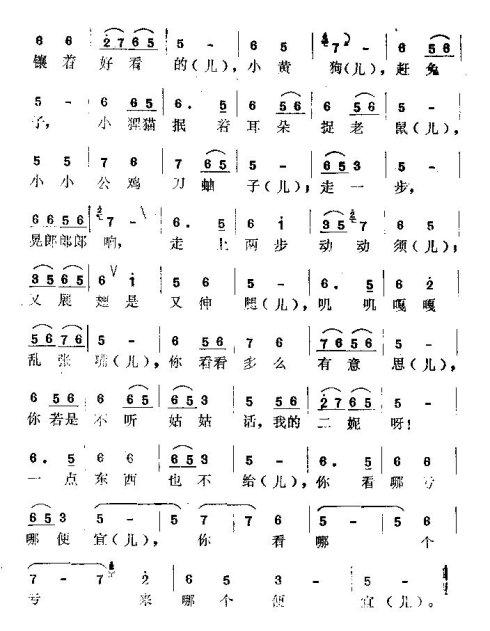 6 6 2765 5 - 6 5 7 - 6 56
镶着好看的(儿),小黄狗(儿),赶兔
5 - 6 65 6. 5 6 56 6 56 5 -
子,小狸猫抿着耳朵捉老鼠(儿),
5 5 7 6 7 65 5 - 653 5 -
小小公鸡刀蛐子(儿);走一步,
6656 7 - 6. 5 6 i 35 7 65
晃郎郎郎响,走上两步动动须(儿);
3565 6 i 5 6 5 - 6. 5 6 2
又展翅是又伸腿(儿),叽叽嘎嘎
5676 5 - 6 56 7 6 7656 5 -
乱张嘴(儿),你看看多么有意思(儿),
6 56 6 65 653 5 56 2765 5 -
你若是不听姑姑话,我的二妮呀!
6. 5 6 6 653 5 - 6. 5 6 6
一点东西也不给(儿),你看哪亏
653 5 - 5 7 7 6 5 - 5 6
哪便宜(儿),你看哪个
7 - 7 2 6 5 3 5 -
亏来哪个便宜(儿)。